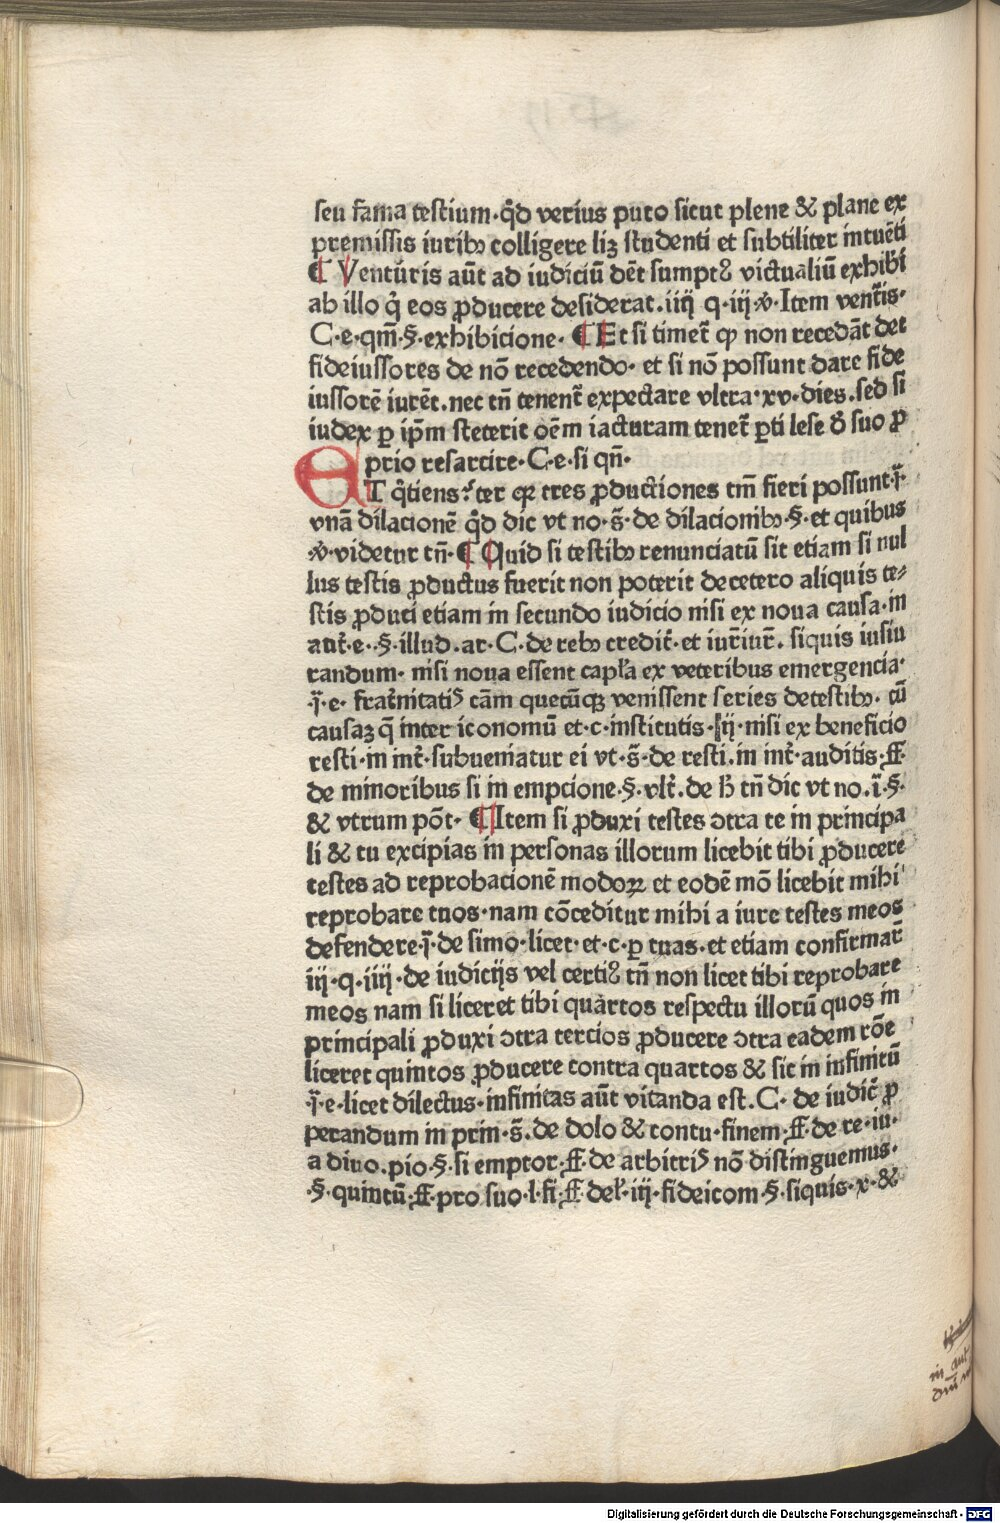 seu fama testium·q̇d verius puto sicut plene & plane ex
premissis iuribꝫ colligere liꝫ studenti et subtiliter intuēti
¶ Venturis aūt ad iudiciū dēt sumptꝰ victualiū exhib̄i
ab illo q̇ eos ꝓducere desiderat.iiij q·iij·Item vent̄is·
C·e·qm̄·§·exhibicione· ¶ Et si timet̄ ꝙ non recedāt det
fideiussores de nō recedendo· et si nō possunt dare fide
iussorē iurēt.nec tn̄ tenent̄ expectare vltra·xv·dies.sed si
iudex ꝑ ip̄m steterit oēm iacturam tenet̄ ꝑti lese đ suo ꝓ
prio resarcire·C·e·si qn̄·
ET q̇tiens: ter qꝛ tres ꝓductiones tm̄ fieri possunt·i̅·
vnā dilacionē q̇d dic vt no·s̄·de dilacionibꝫ·§·et quibus
videtur tn̄·¶ Quid si testibꝫ renunciatū sit etiam si nul
lus testis ꝓductus fuerit non poterit decetero aliquis te⸗
stis ꝓduci etiam in secundo iudicio nisi ex noua causa·in
aut̄·e·§·illud.ar·C·de rebꝫ credit̄·et iur̄iur̄. siquis iusiu
randum· nisi noua essent capl̄a ex veteribus emergencia·
·i̅·e· frat̄nitatiꝰ cām quecūqꝫ venissent series detestibꝫ· cū
causaꝫ q̄ inter iconomū et·c·institutis·iij·nisi ex beneficio
resti·in int̄·subueniatur ei vt·s̄·de resti.in int̄·auditis·ff·
de minoribus si in empcione·§·vlt̄.de h̄ tn̄ dic vt no.i̅·§·
& vtrum pōt· ¶ Item si ꝓduxi testes ↄtra te in principa
li & tu excipias in personas illorum licebit tibi ꝓducere
testes ad reprobacionē modoꝝ et eodē mō licebit mihi
reprobare tuos·nam cōceditur mihi a iure testes meos
defendere·i̅·de simo·licet·et·c·ꝑ tuas·et etiam confirmar̄
iij·q·iiij·de iudicijs vel certiꝰ tn̄ non licet tibi reprobare
meos nam si liceret tibi quartos respectu illorū quos in
principali ꝓduxi ↄtra tercios ꝓducere ↄtra eadem rōe
liceret quintos ꝓducere contra quartos & sic in infinitū
·i̅·e·licet dilectus·infinitas aūt vitanda est.C· de iudic̄ ꝓ
perandum in prin·s̄.de dolo & contu·finem·ff·de re·iu·
a diuo.pio·§·si emptor·ff·de arbitriꝰ nō distinguemus·
·§·quintū·ff·pro suo·l·fi·ff·deł·iij·fideicom·§·siquis·x·&
in aut
Digitalisierung gefördert durch die Deutsche Forschungsgemeinschaft - DFG